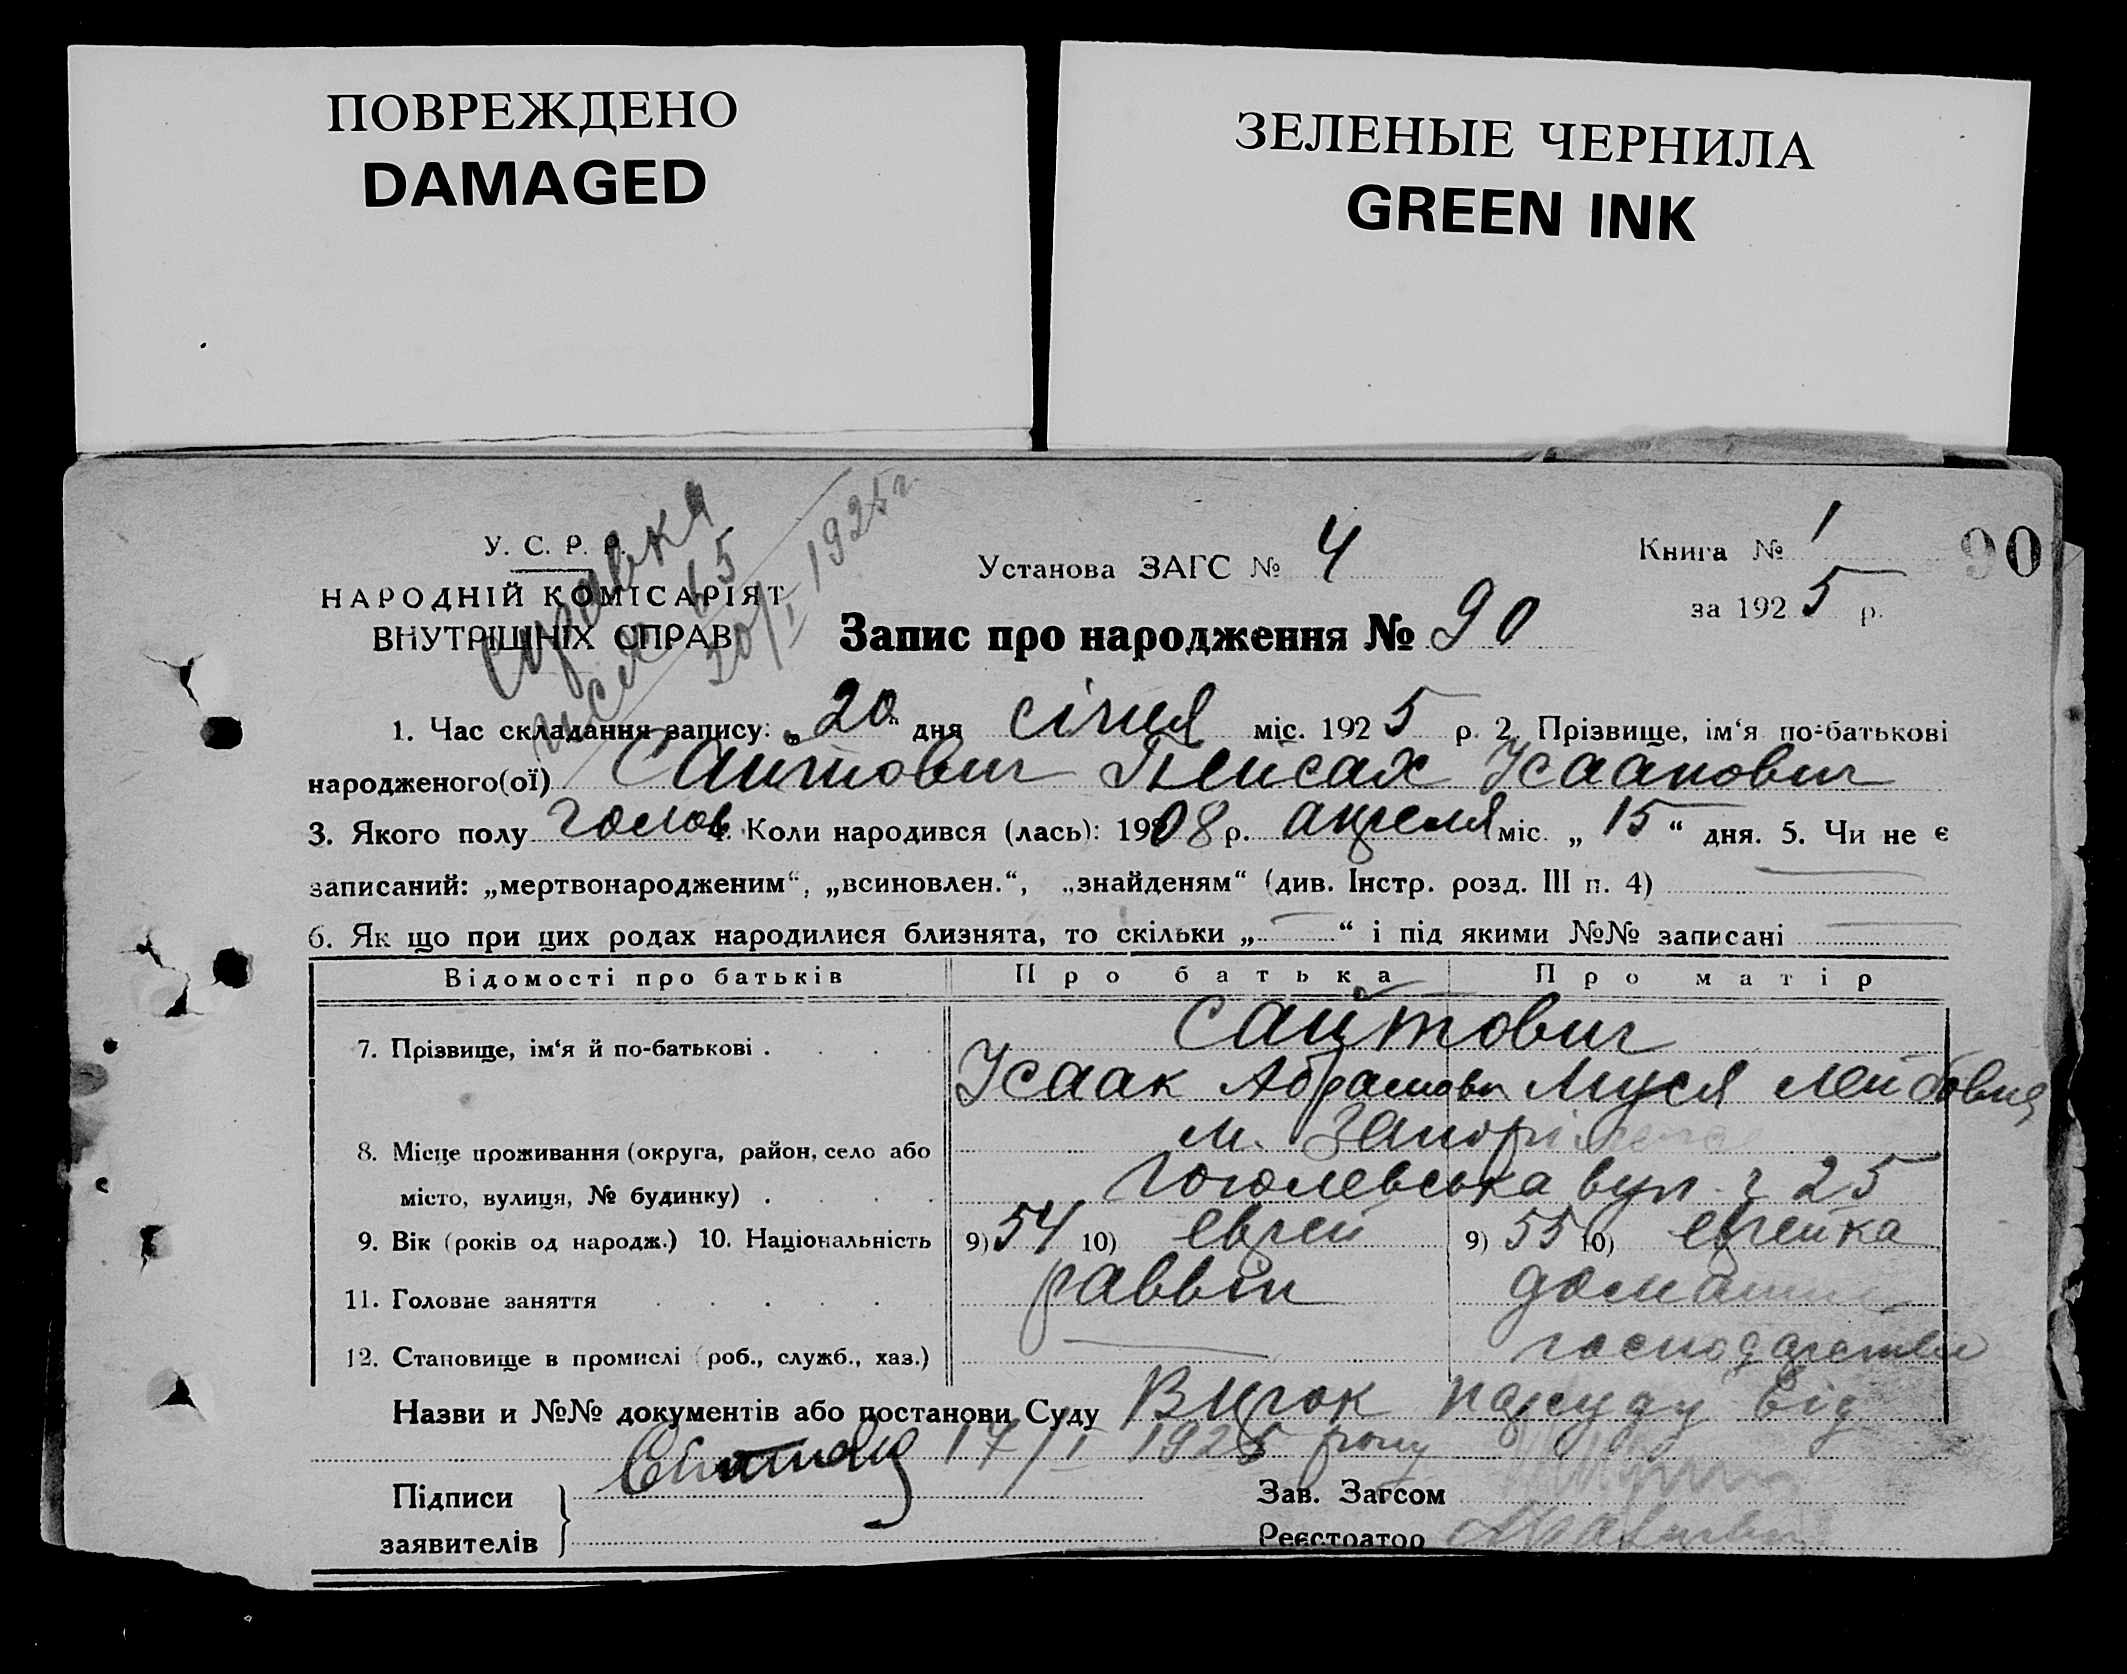 ПОВРЕЖДЕНО
DAMAGED
ЗЕЛЕНЫЕ ЧЕРНИЛА
GREEN INK
У. С. Р. Р.
НАРОДНІЙ КОМІСАРІЯТ
ВНУТРІШНІХ СПРАВ
Справка
20/I 1925 г.
Установа ЗАГС № 4
Книга № 1
за 1925 р.
90
Запис про народження № 90
1. Час складання запису: „20“ дня січня міс. 1925 р. 2. Прізвище, ім‘я по-батькові
народженого(ої) Сайтович Пейсах Ісаакович
3. Якого полу голов. 4. Коли народився (лась): 1908 р. апреля міс. „15“ дня. 5. Чи не є
записаний: „мертвонародженим“, „всиновлен.“, „знайденям“ (див. Інстр. розд. III п. 4)
6. Як що при цих родах народилися близнята, то скільки „—“ і під якими №№ записані
Відомості про батьків Про батька Про матір
7. Прізвище, ім‘я й по-батькові . . . . Сайтович
Ісаак Абрамович Муся Лейбовна
8. Місце проживання (округа, район, село або м. Запоріжжє
місто, вулиця, № будинку) . . . . Гоголевська вул. ч 25
9. Вік (років од народж.) 10. Національність 9) 54 10) еврей 9) 55 10) еврейка
11. Головне заняття . . . . . раввін домашне
12. Становище в промислі (роб., служб., хаз.) — господарство
Назви и №№ документів або постанови Суду Вирок нарсуду від
17/I 1925 року
Підписи
заявителів
Зав. Загсом
Реєстратор